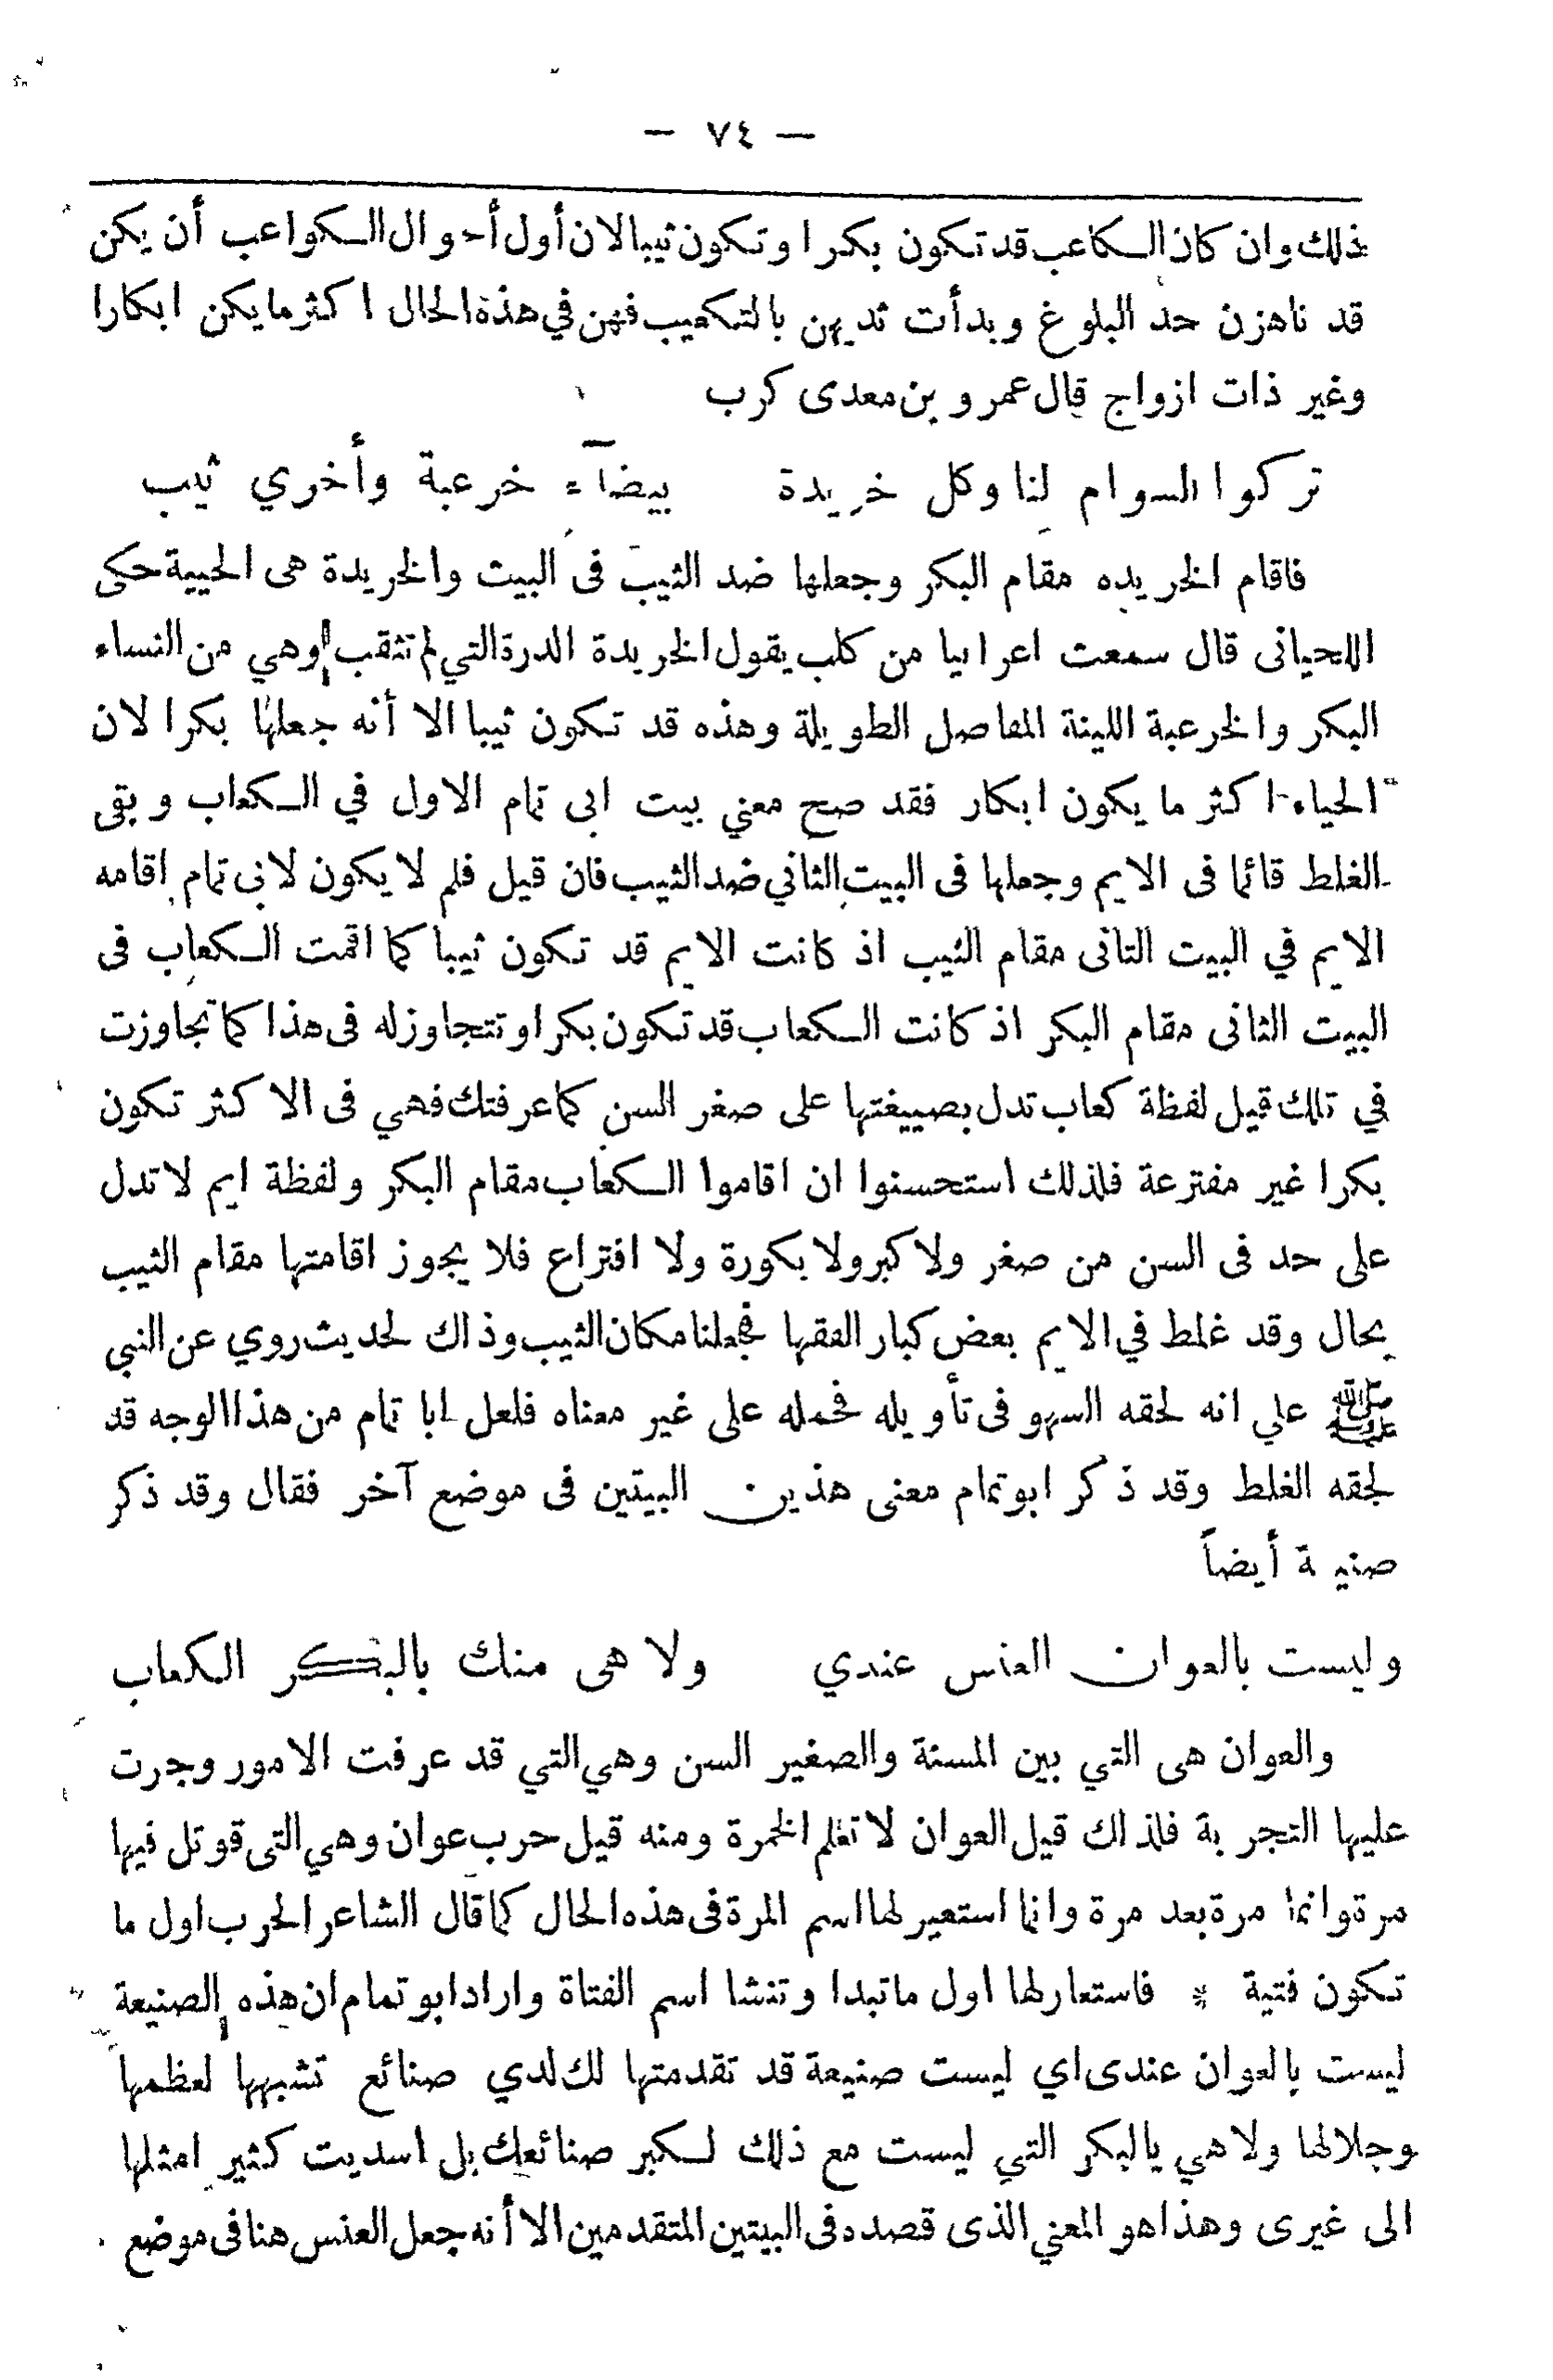 — ٧٤ —
ذلك وان كان الكاعب قد تكون بكرا وتكون ثيبا لان أول أحوال الكواعب أن يكن
قد ناهزن حد البلوغ وبدأت ثديهن بالتكعيب فهن في هذة الحال اكثر ما يكن ابكارا
وغير ذات ازواج قال عمرو بن معدى كرب
تركوا السوام لنا وكل خريدة بيضآء خرعبة وأخري ثيب
فاقام الخريده مقام البكر وجعلها ضد الثيب فى البيت والخريدة هى الحيية حكى
اللحيانى قال سمعت اعرابيا من كلب يقول الخريدة الدرة التي لم تثقب وهي من النساء
البكر والخرعبة اللينة المفاصل الطويلة وهذه قد تكون ثيبا الا أنه جعلها بكرا لان
الحياء اكثر ما يكون ابكار فقد صح معني بيت ابى تمام الاول في الكعاب وبقى
الغلط قائما فى الايم وجعلها فى البيت الثاني ضد الثيب فان قيل فلم لا يكون لابى تمام اقامه
الايم في البيت الثانى مقام الثيب اذ كانت الايم قد تكون ثيبا كما اقمت الكعاب فى
البيت الثانى مقام البكر اذ كانت الكعاب قد تكون بكرا وتتجاوز له فى هذا كما تجاوزت
في تلك قيل لفظة كعاب تدل بصييغتها على صغر السن كما عرفتك فهي فى الاكثر تكون
بكرا غير مفترعة فلذلك استحسنوا ان اقاموا الكعاب مقام البكر ولفظة ايم لا تدل
على حد فى السن من صغر ولا كبر ولا بكورة ولا افتراع فلا يجوز اقامتها مقام الثيب
بحال وقد غلط في الايم بعض كبار الفقها فجعلنا مكان الثيب وذاك لحديث روي عن النبي
ﷺ علي انه لحقه السهو فى تأويله فحمله على غير معناه فلعل ابا تمام من هذا الوجه قد
لحقه الغلط وقد ذكر ابو تمام معنى هذين البيتين فى موضع آخر فقال وقد ذكر
صنيـة أيضاً
وليست بالعوان العنس عندي ولا هى منك بالبكر الكعاب
والعوان هى التي بين المسنة والصغير السن وهي التي قد عرفت الامور وجرت
عليها التجربة فلذاك قيل العوان لا تعلم الخمرة ومنه قيل حرب عوان وهي التى قوتل فيها
مرة وانما مرة بعد مرة وانما استعير لها اسم المرة فى هذه الحال كما قال الشاعر الحرب اول ما
تكون فتية * فاستعار لها اول ما تبدا وتنشا اسم الفتاة واراد ابو تمام ان هذه الصنيعة
ليست بالعوان عندى اي ليست صنيعة قد تقدمتها لك لدي صنائع تشبهها لعظمها
وجلالها ولا هي بالبكر التي ليست مع ذلك لكبر صنائعك بل اسديت كثير امثلها
الى غيرى وهذا هو المعني الذى قصده فى البيتين المتقدمين الا أنه جعل العنس هنا فى موضع